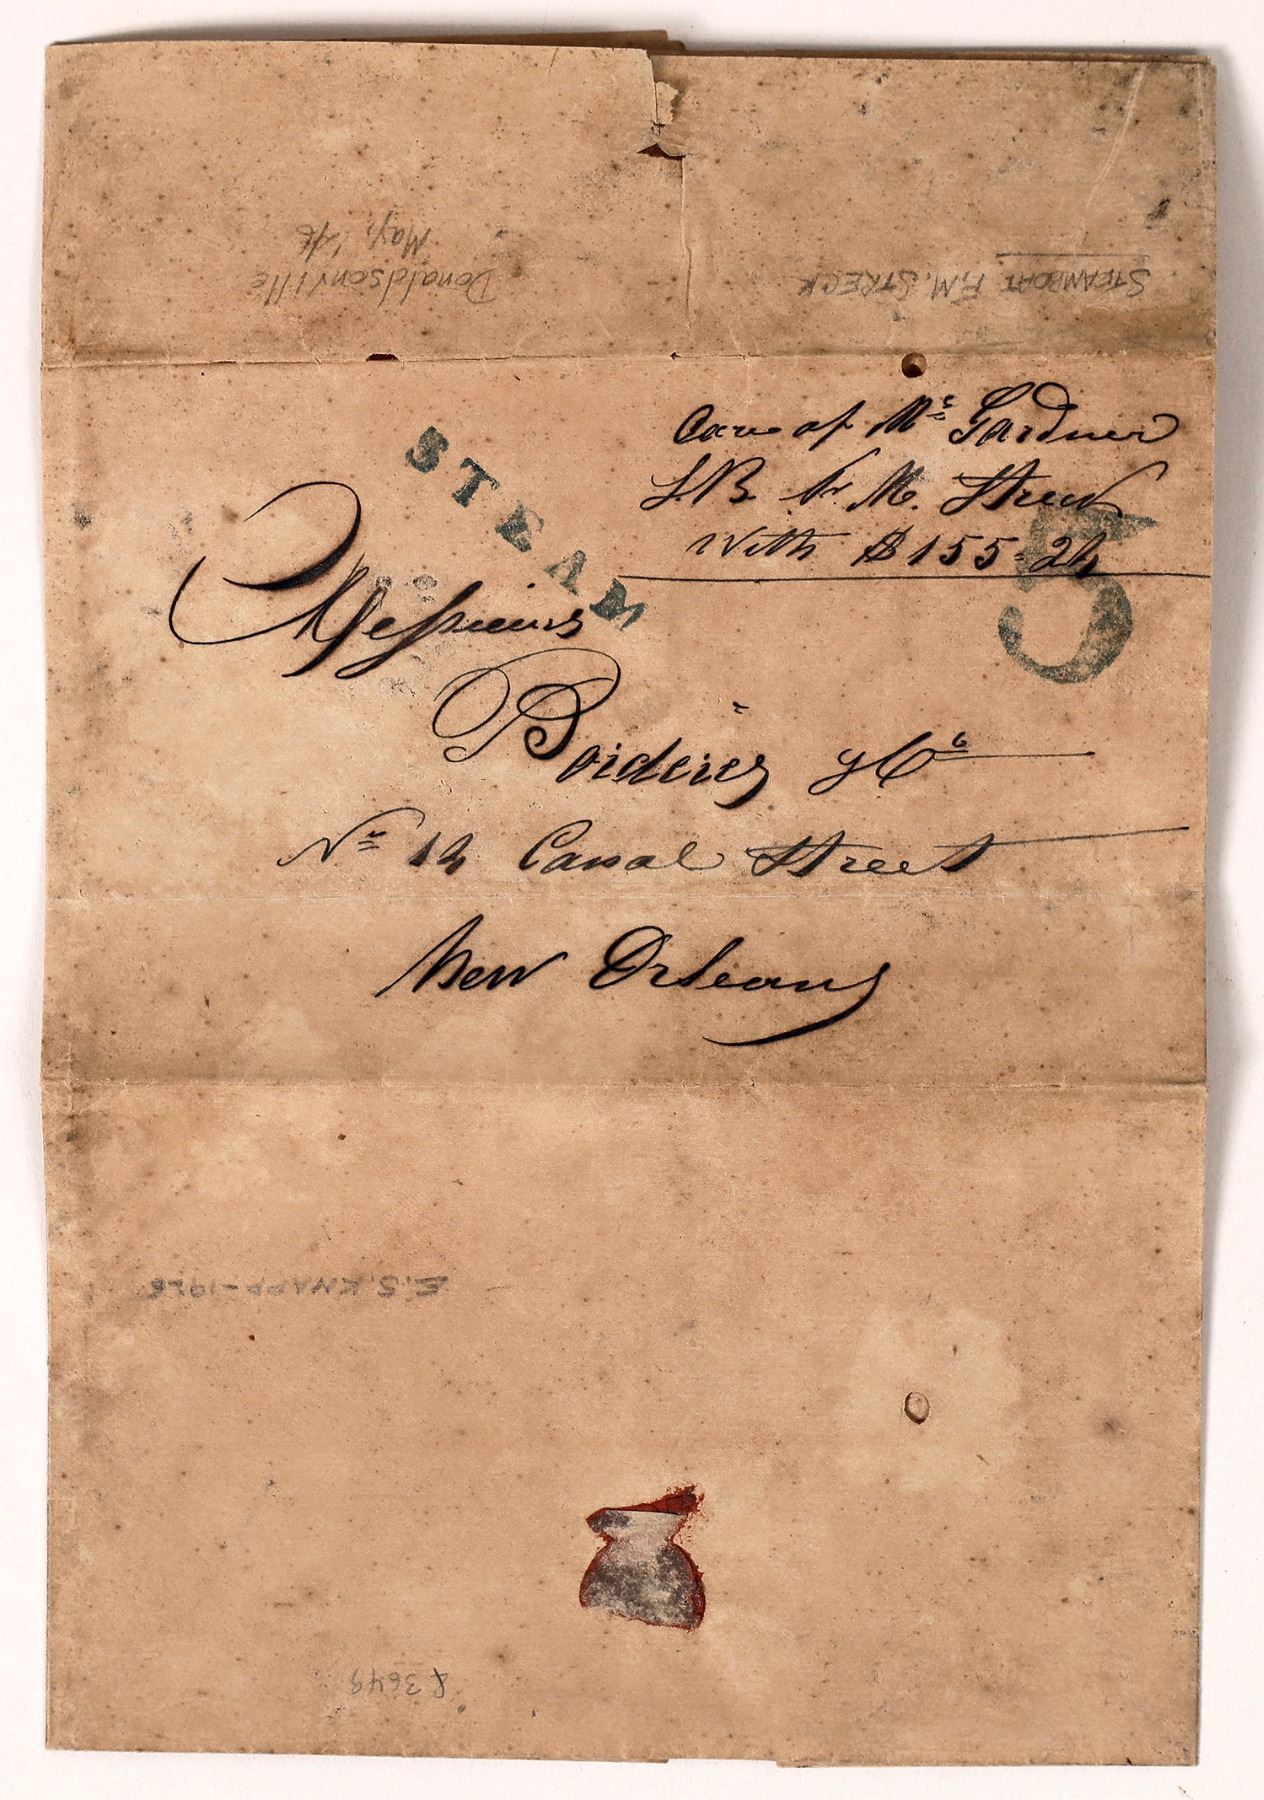 May, '46
Donaldsonville
STEAMBOAT F.M. STRECK
Care of Mr Gardner
S.B. F. M. Streck
With $155=24
STEAM
5
Messieurs
Borderies y Co
No 12 Canal Street
New Orleans
E.S. KNAPP-1926
£3649